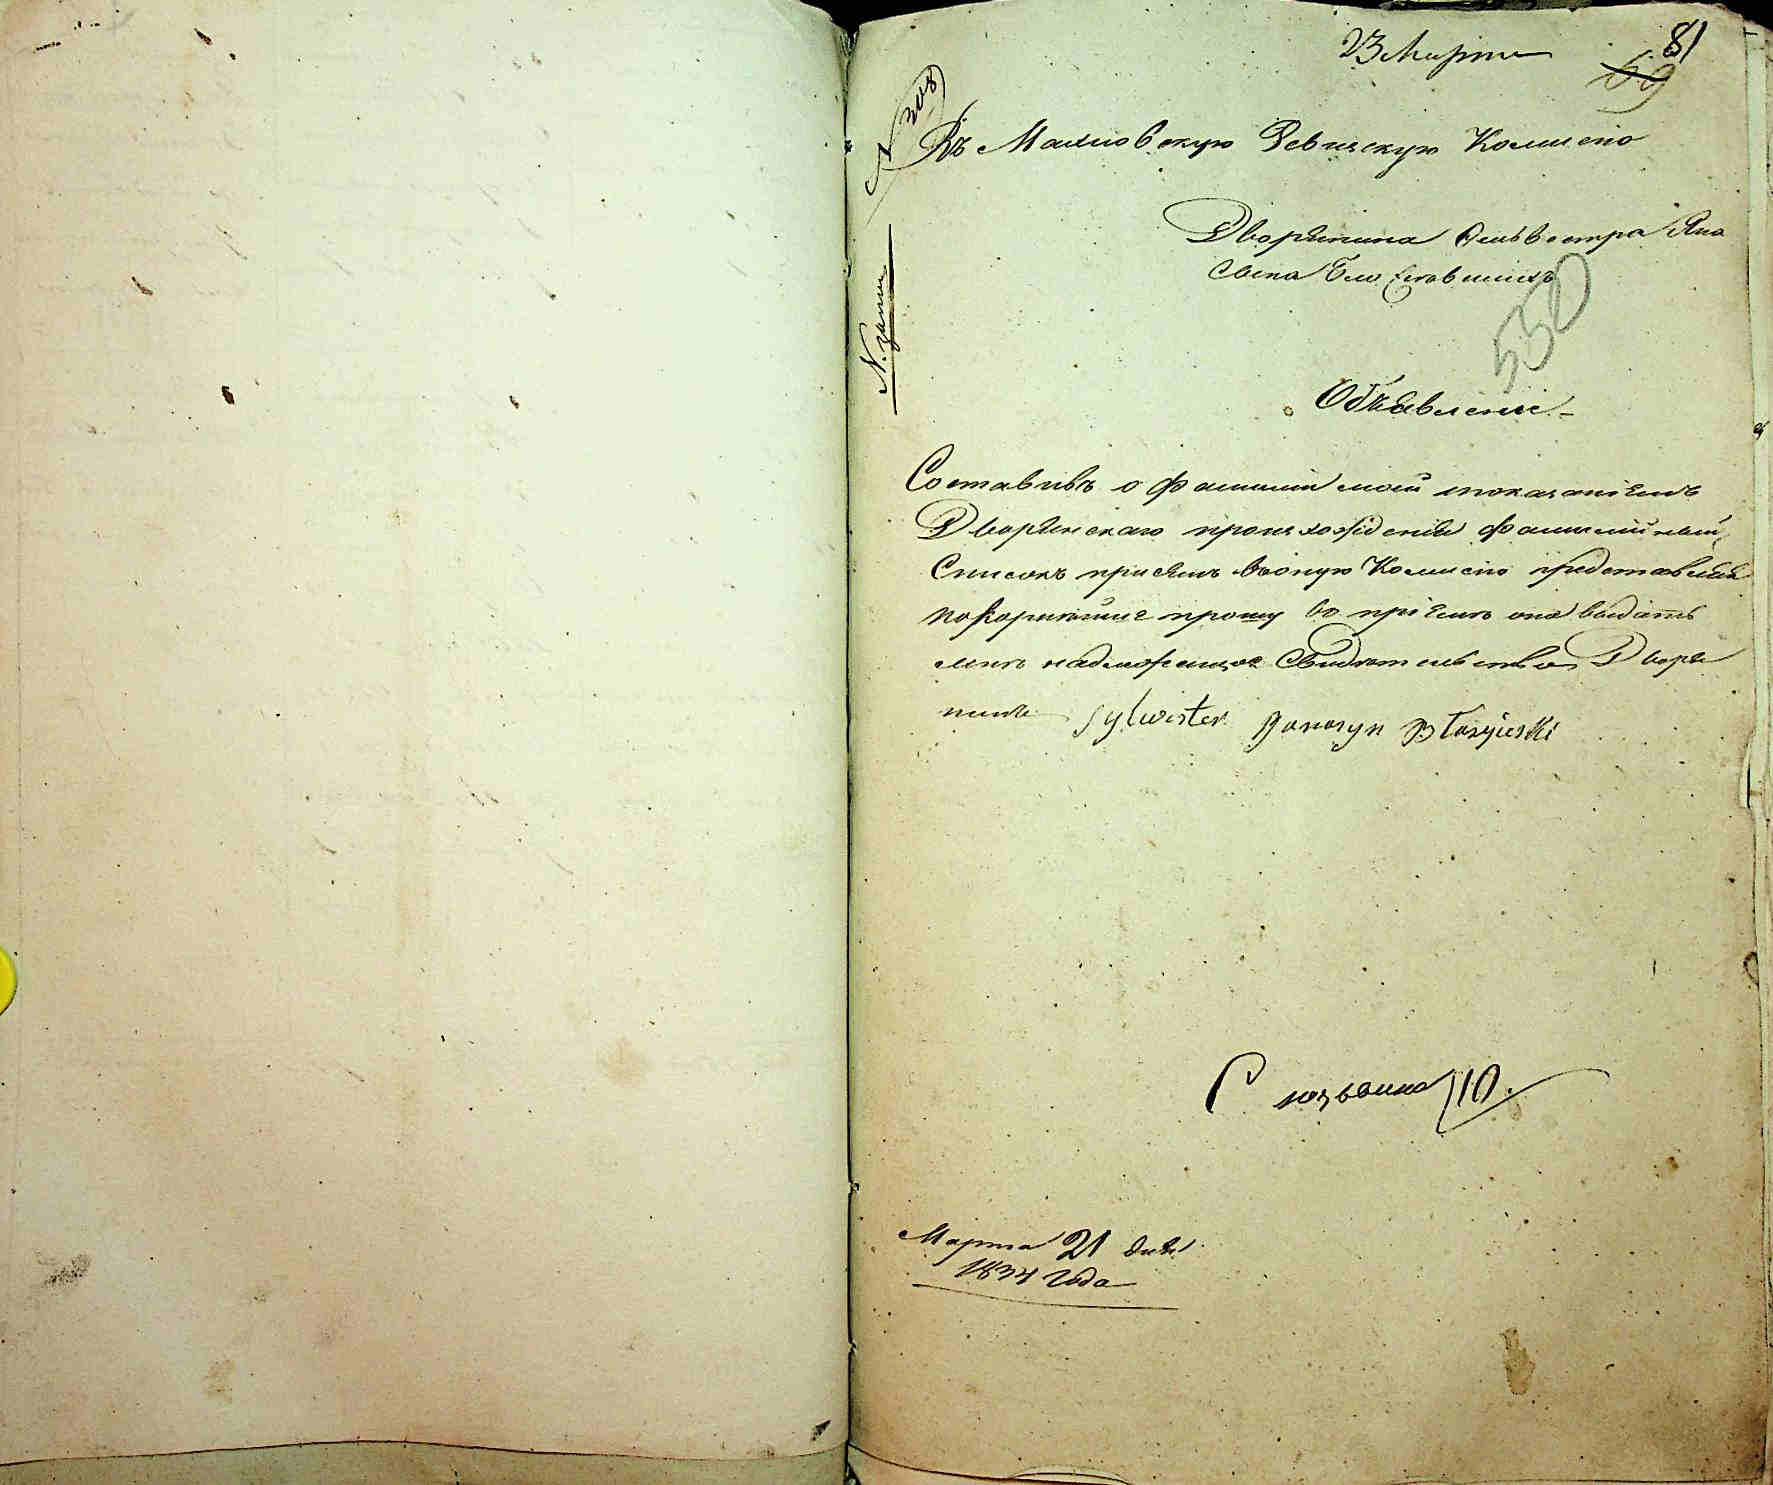 23 Марта
81
69
N 308
N. запи
Въ Махновскую Ревизскую Комисію
Дворянина Сильвестра Яна
сына Блажіовскихъ
532
Объявленіе
Составивъ о фамиліи моей показаніемъ
Дворянскаго происхожденія фамилійный
Списокъ присемъ воную Комисію представляя
покорнейше прошу во пріемъ она выдать
мнѣ надлежащое Свидѣтельство Дворя
нинъ Sylwester Janasyn Błażijeski
Марта 21 дня
1834 Года